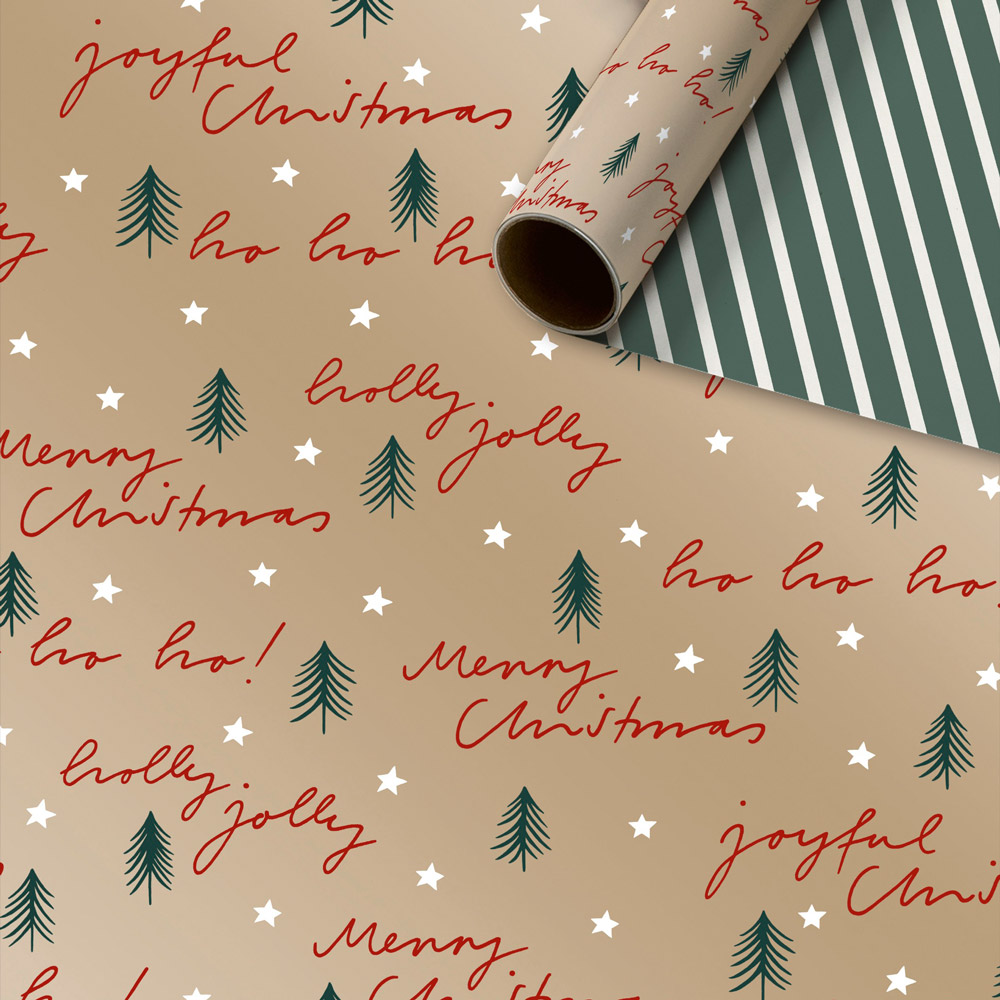 joyful
Christmas
ho ho
ho ho ho!
Christmas
holly
jolly
Merry
Christmas
ho ho ho
ho ho!
Merry
Christmas
holly
jolly
joyful
Merry